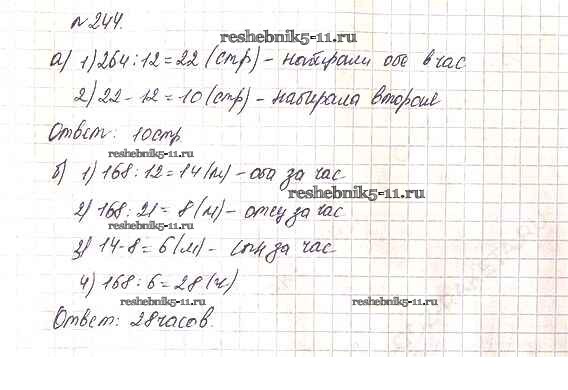 № 244.
reshebnik5-11.ru
а) 1) 264 : 12 = 22 (стр) - набирали обе в час
2) 22 - 12 = 10 (стр) - набирала вторая
Ответ: 10 стр.
reshebnik5-11.ru
б) 1) 168 : 12 = 14 (м) - оба за час
reshebnik5-11.ru
2) 168 : 21 = 8 (м) - отец за час
reshebnik5-11.ru
3) 14 - 8 = 6 (м) - сын за час
4) 168 : 6 = 28 (ч)
reshebnik5-11.ru reshebnik5-11.ru
Ответ: 28 часов.